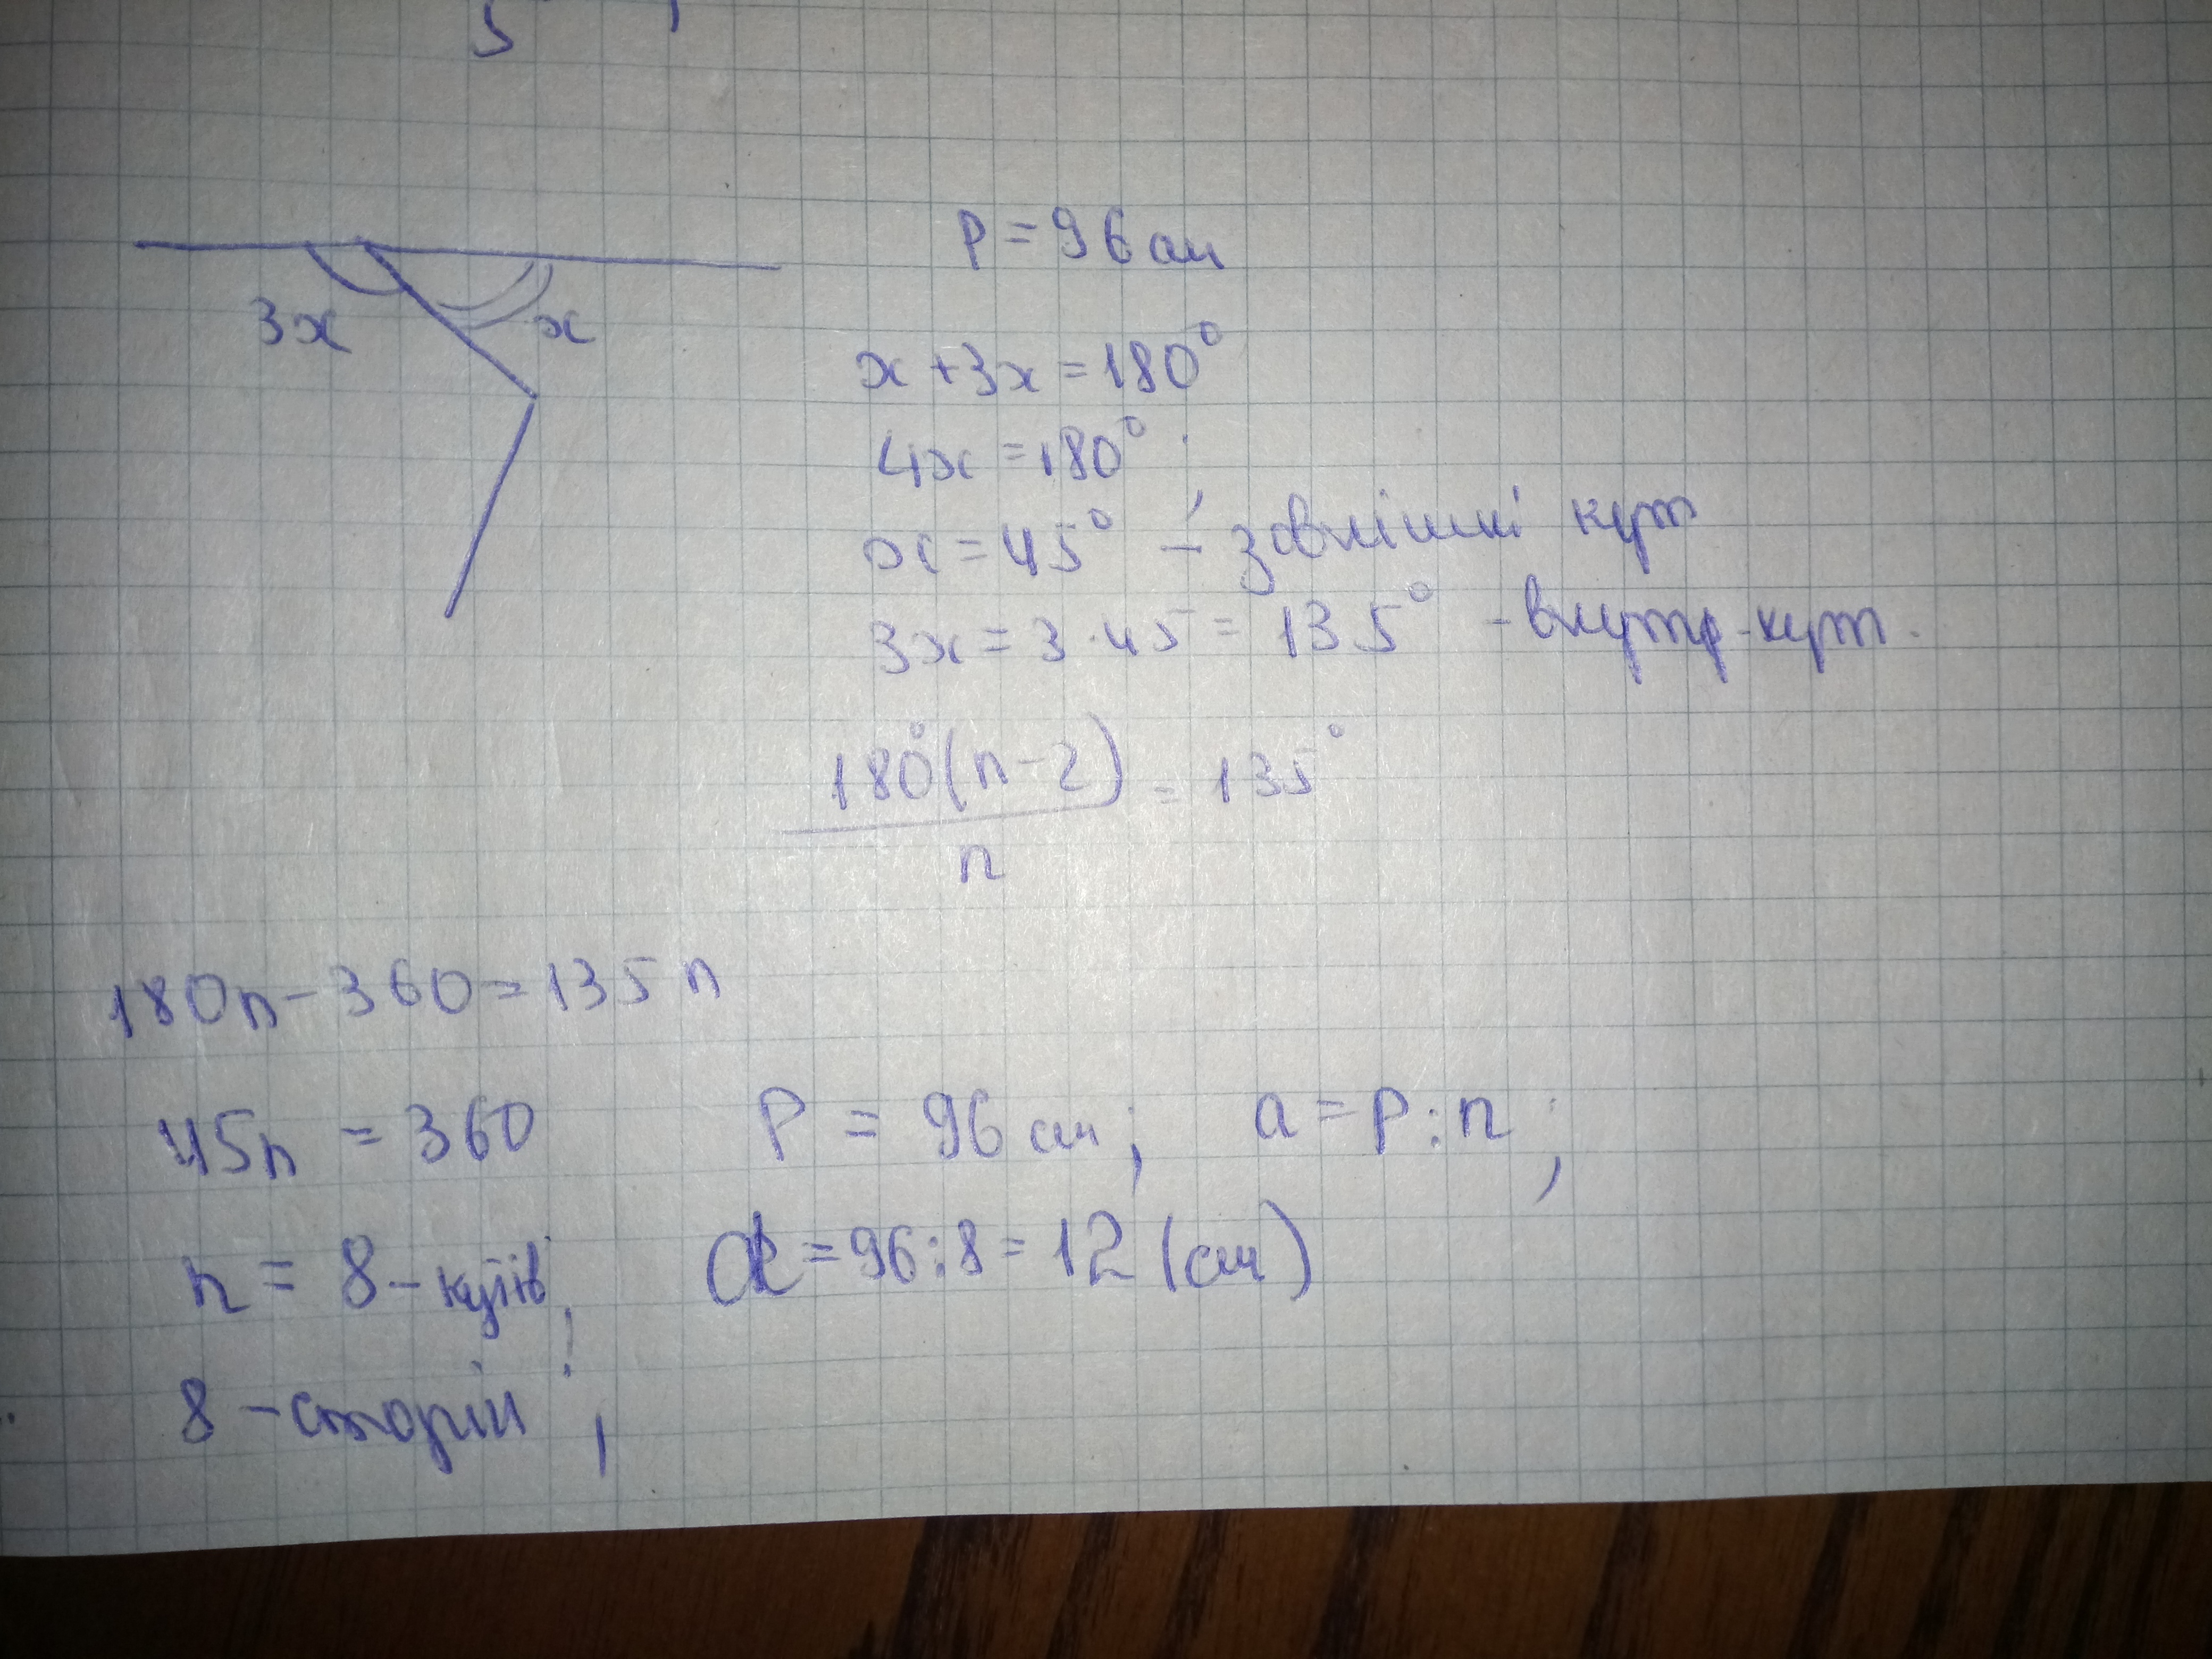 5
3x
x
P = 96 см
x + 3x = 180°
4x = 180°;
x = 45° - зовнішні кут
3x = 3·45 = 135° - внутр-кут.
180°(n-2) / n = 135°
180n - 360 = 135n
45n = 360
P = 96 см; a = P:n;
n = 8 - кутів;
a = 96:8 = 12 (см)
8 - сторін;